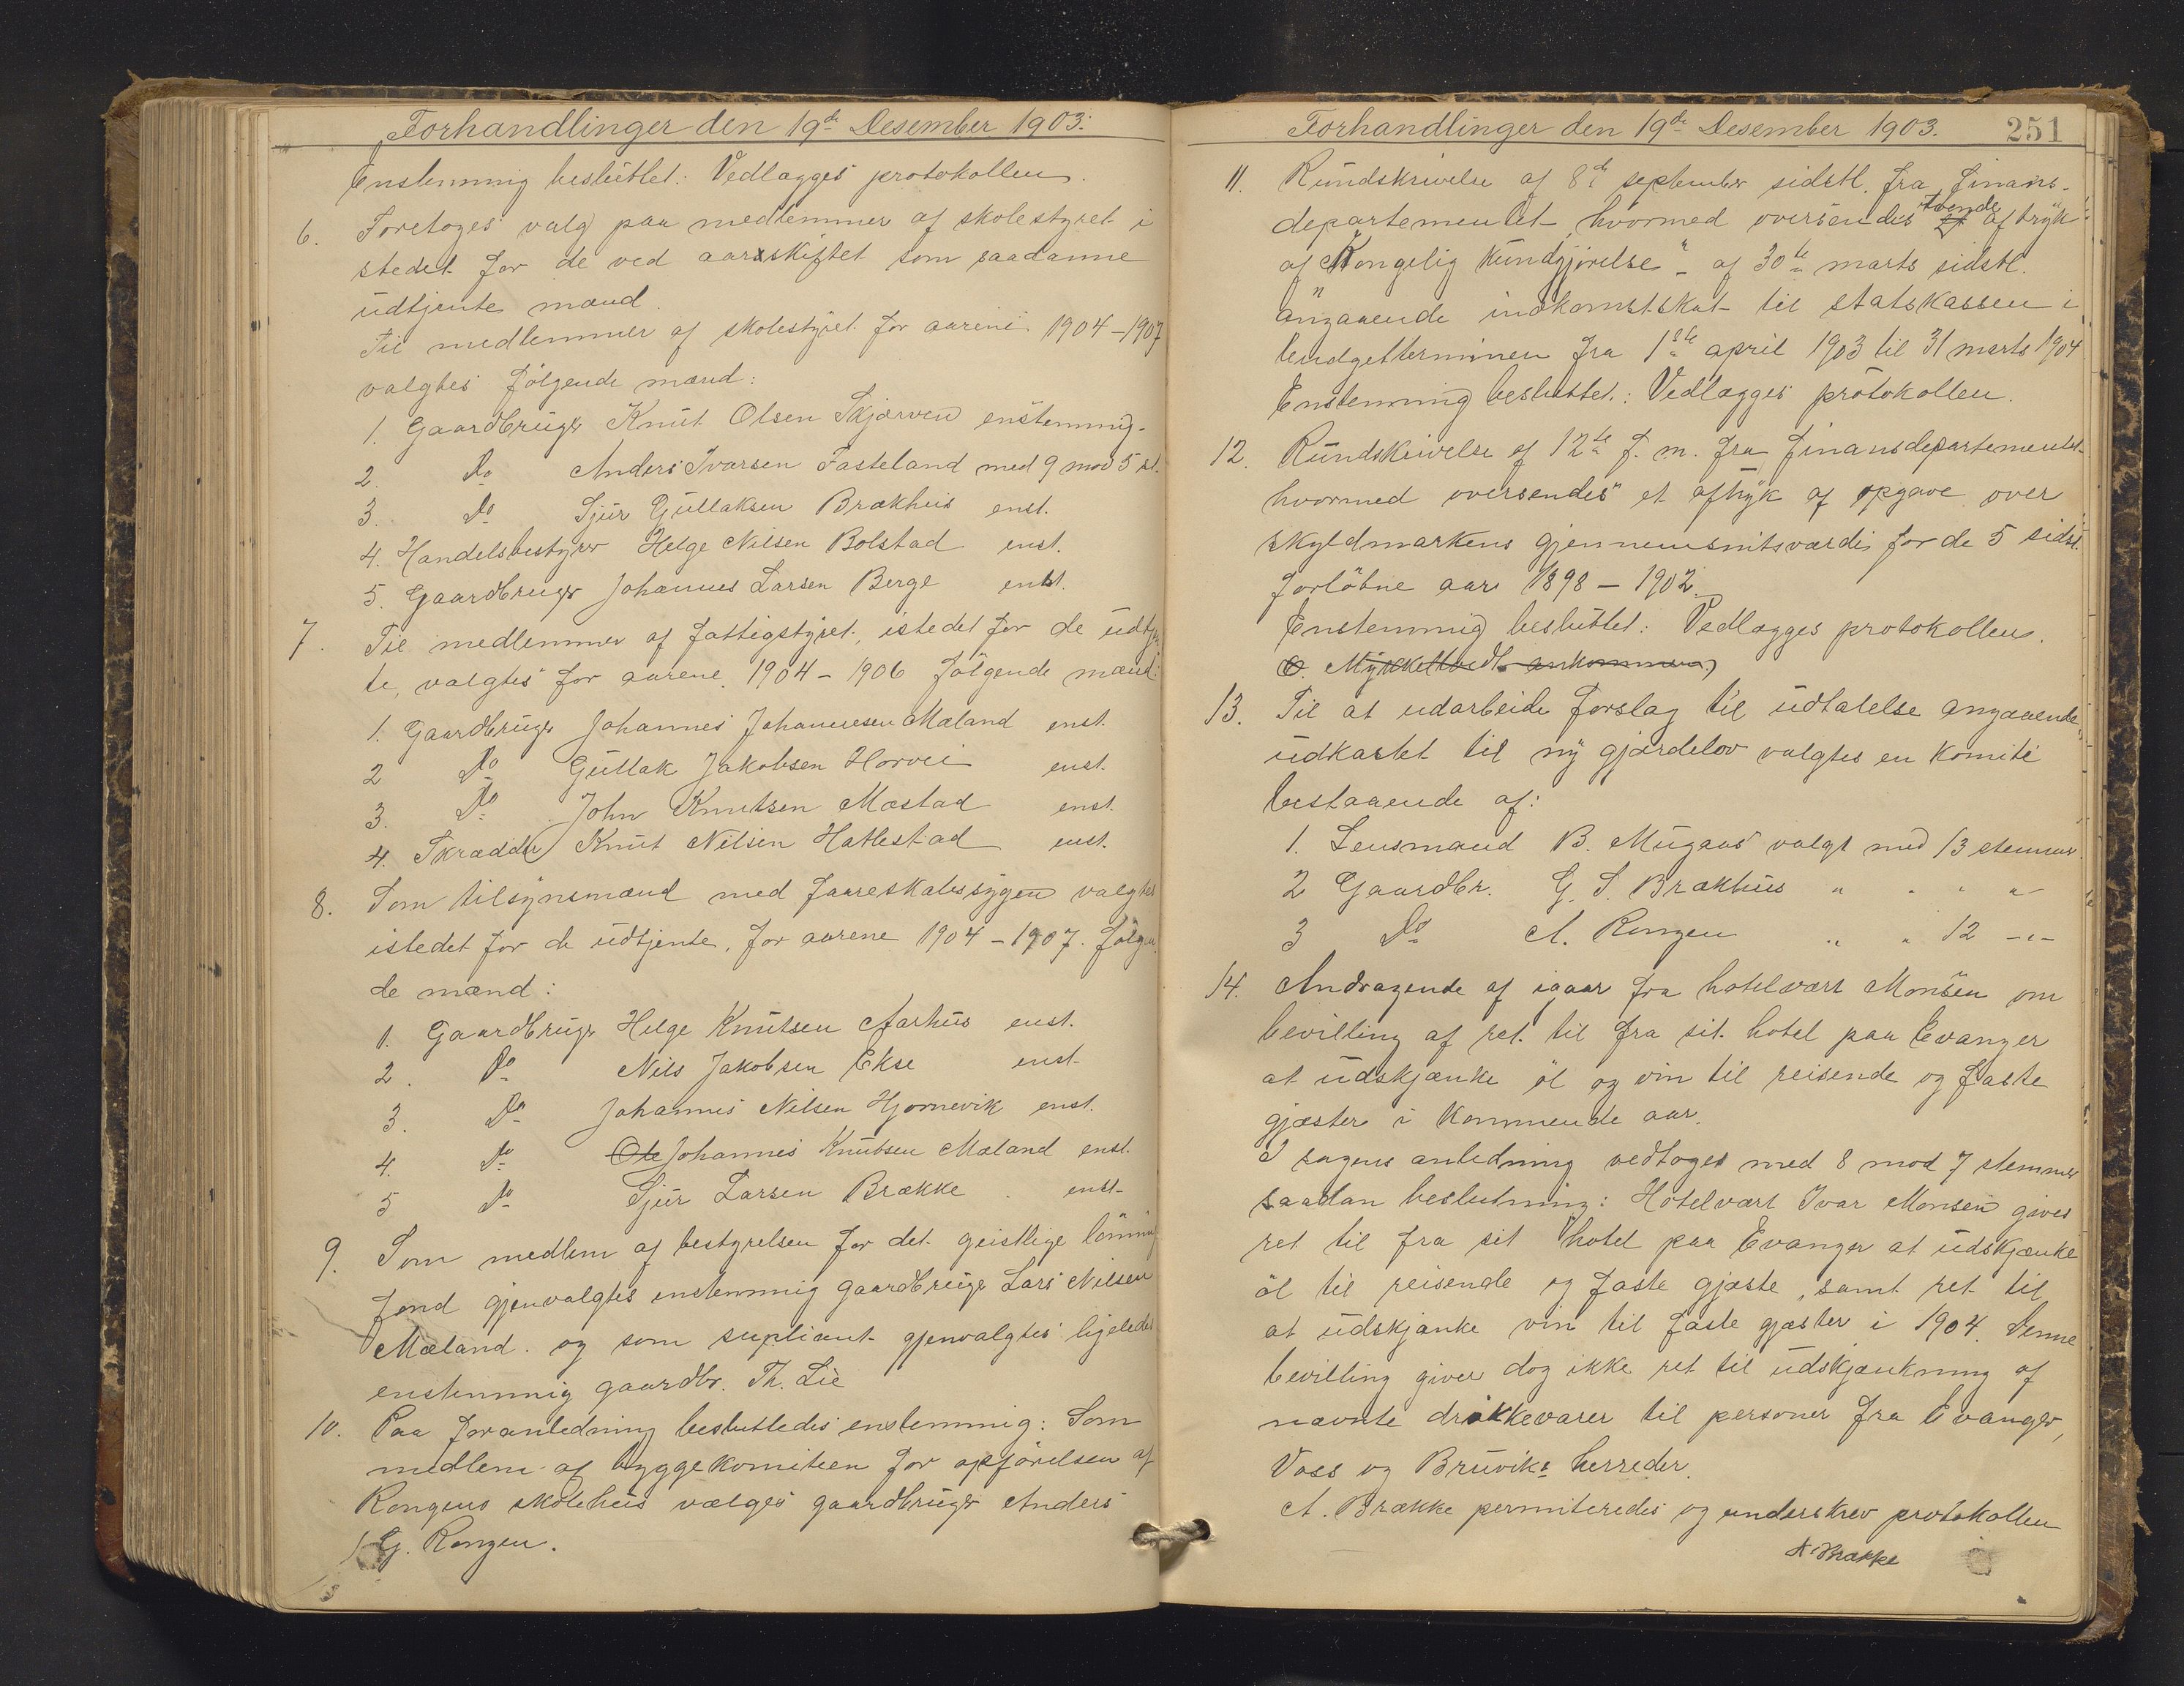 Forhandlinger den 19de Desember 1903.
Enstemmig besluttet: Vedlægges protokollen.
6. Foretoges valg paa medlemmer af skolestyret i
stedet for de ved aarsskiftet som saadanne
udtjente mænd.
Til medlemmer af skolestyret for aarene 1904-1907
valgtes følgende mænd:
1. Gaardbruger Knut Olsen Skjærven enstemmig.
2. Do Anders Ivarsen Fasteland med 9 mod 5 st.
3. Do Sjur Gullaksen Brækhus enst.
4. Handelsbestyrer Helge Nilsen Bolstad enst.
5. Gaardbruger Johannes Larsen Berge enst.
7. Til medlemmer af fattigstyret, istedet for de udtjen
te, valgtes for aarene 1904-1906 følgende mænd:
1. Gaardbruger Johannes Johannesen Mæland enst.
2 Do Gullak Jakobsen Horvei enst.
3. Do John Knutsen Mæstad enst.
4. Skrædder Knut Nilsen Hatlestad enst.
8. Som tilsynsmænd med faareskabssygen valgtes
istedet for de udtjente, for aarene 1904-1907. følgen
de mænd:
1. Gaardbruger Helge Knutsen Aarhus enst.
2. Do Nils Jakobsen Ekse enst.
3. Do Johannes Nilsen Hjørnevik enst.
4. Do Ole Johannes Knutsen Mæland enst.
5 Do Sjur Larsen Brække enst.
9. Som medlem af bestyrelsen for det geistlige lønnings
fond gjenvalgtes enstemmig gaardbruger Lars Nilsen
Mæland. og som supliant gjenvalgtes ligeledes
enstemmig gaardbr. Th. Lie
10. Paa foranledning besluttedes enstemmig: Som
medlem af byggekomiteen for opførelsen af
Rongens skolehus vælges gaardbruger Anders
G. Rongen.
Forhandlinger den 19de Desember 1903. 251
11. Rundskrivelse af 8de september sidstl. fra finans-
departementet hvormed oversendes tvende aftryk
af "Kongelig kundgjørelse" af 30te marts sidstl.
angaaende indkomstskat til statskassen i
budgetterminen fra 1ste april 1903 til 31 marts 1904
Enstemmig besluttet: Vedlægges protokollen.
12. Rundskrivelse af 12te f. m. fra finansdepartementet
hvormed oversendes et aftryk af opgave over
skyldmarkens gjennemsnitsværdi for de 5 sidst
forløbne aar 1898-1902.
Enstemmig besluttet: Vedlægges protokollen.
O. Mykkeltvedt ankommen,
13. Til at udarbeide forslag til udtalelse angaaende
udkastet til ny gjærdelov valgtes en komité
bestaaende af:
1. Lensmand B. Mugaas valgt med 13 stemmer
2 Gaardbr. G. S. Brækhus " " " "
3 Do A. Rongen " " 12 -"-
14. Andragende af igaar fra hotelvært Monsen om
bevilling af ret til fra sit hotel paa Evanger
at udskjænke øl og vin til reisende og faste
gjæster i kommende aar.
I sagens anledning vedtoges med 8 mod 7 stemmer
saadan beslutning: Hotelvært Ivar Monsen gives
ret til fra sit hotel paa Evanger at udskjænke
øl til reisende og faste gjæste, samt ret til
at udskjænke vin til faste gjæster i 1904. Denne
bevilling giver dog ikke ret til udskjænkning af
nævnte drikkevarer til personer fra Evanger,
Voss og Bruviks herreder.
A. Brække permiteredes og underskrev protokollen
A. Brække